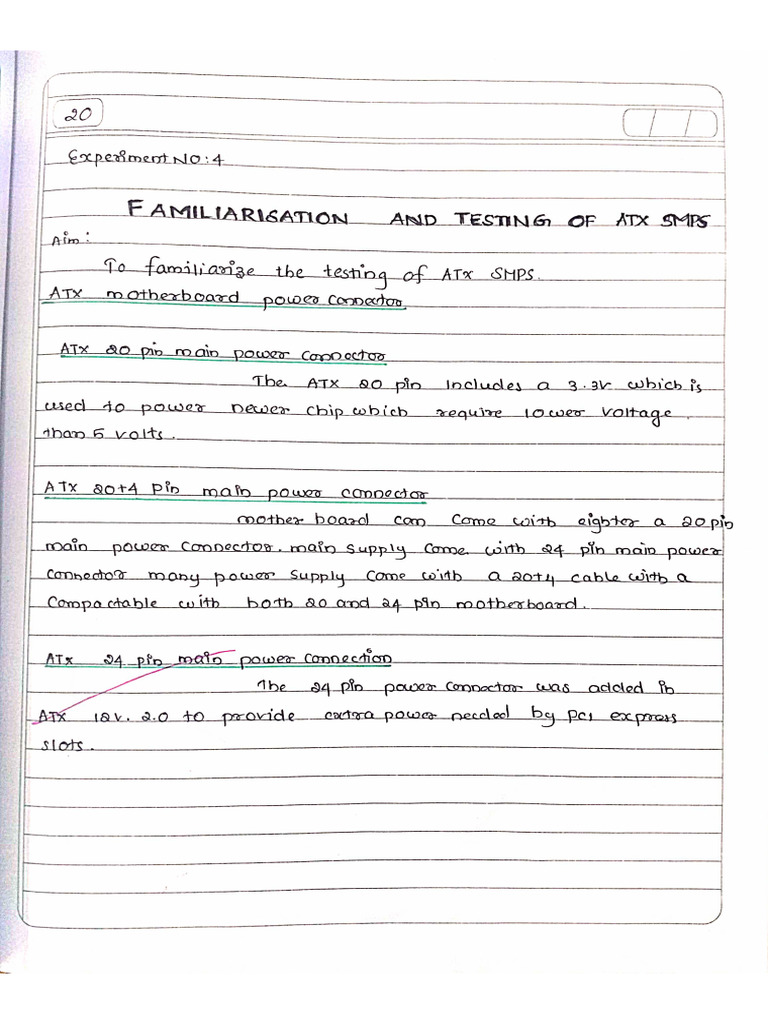 20
Experiment No: 4
FAMILIARISATION AND TESTING OF ATX SMPS
Aim:
To familiarize the testing of ATX SMPS.
ATX motherboard power connector
ATX 20 pin main power connector
The ATX 20 pin includes a 3.3v which is
used to power newer chip which require lower voltage
than 5 volts.
ATX 20+4 pin main power connector
mother board can come with eighter a 20 pin
main power connector. main supply come with 24 pin main power
connector many power supply come with a 20+4 cable with a
compactable with both 20 and 24 pin motherboard.
ATX 24 pin main power connection
The 24 pin power connector was added in
ATX 12v. 2.0 to provide extra power needed by pci express
slots.